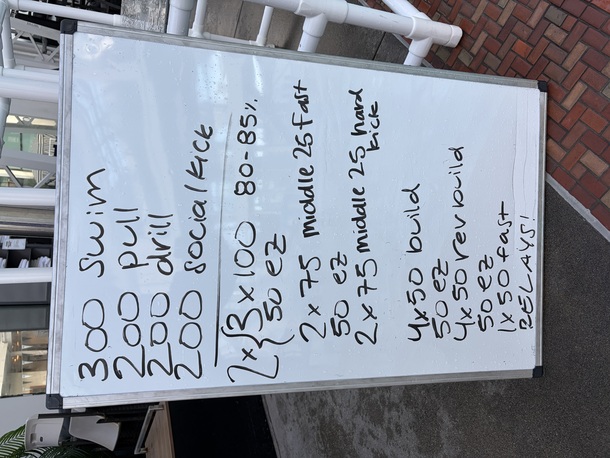 300 swim
200 pull
200 drill
200 social kick
2 x { 3 x 100 80-85%
50 ez
2 x 75 middle 25 fast
50 ez
2 x 75 middle 25 hard
kick
4x50 build
50 ez
4x50 rev build
50 ez
1x50 fast
RELAYS!